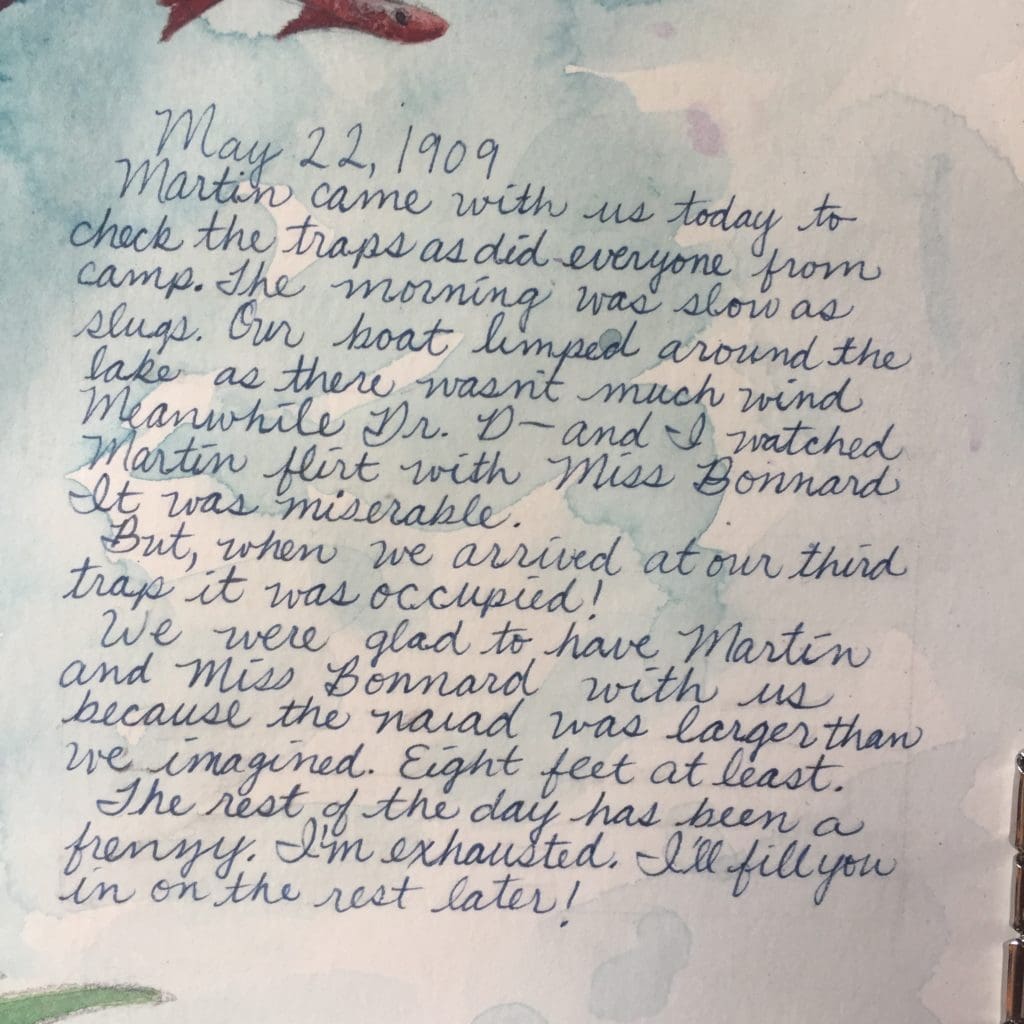 May 22, 1909
Martin came with us today to
check the traps as did everyone from
camp. The morning was slow as
slugs. Our boat limped around the
lake as there wasn't much wind
Meanwhile Dr. D— and I watched
Martin flirt with Miss Bonnard
It was miserable.
But, when we arrived at our third
trap it was occupied!
We were glad to have Martin
and Miss Bonnard with us
because the naiad was larger than
we imagined. Eight feet at least.
The rest of the day has been a
frenzy. I'm exhausted. I'll fill you
in on the rest later!